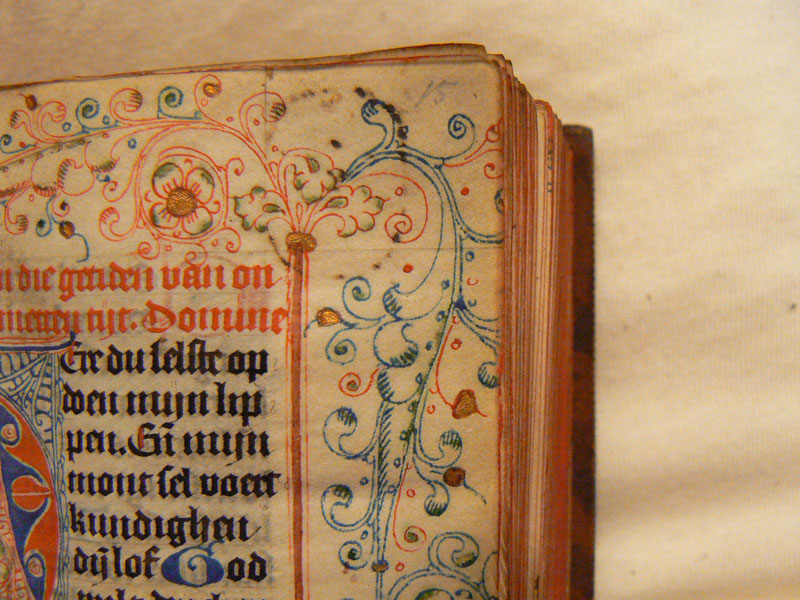 15
die getiden van on
metten tijt. Domine
Ere du selste op
doen mijn lip
pen. Eñ mijn
mont sel voert
kundighen
dij̄ lof God